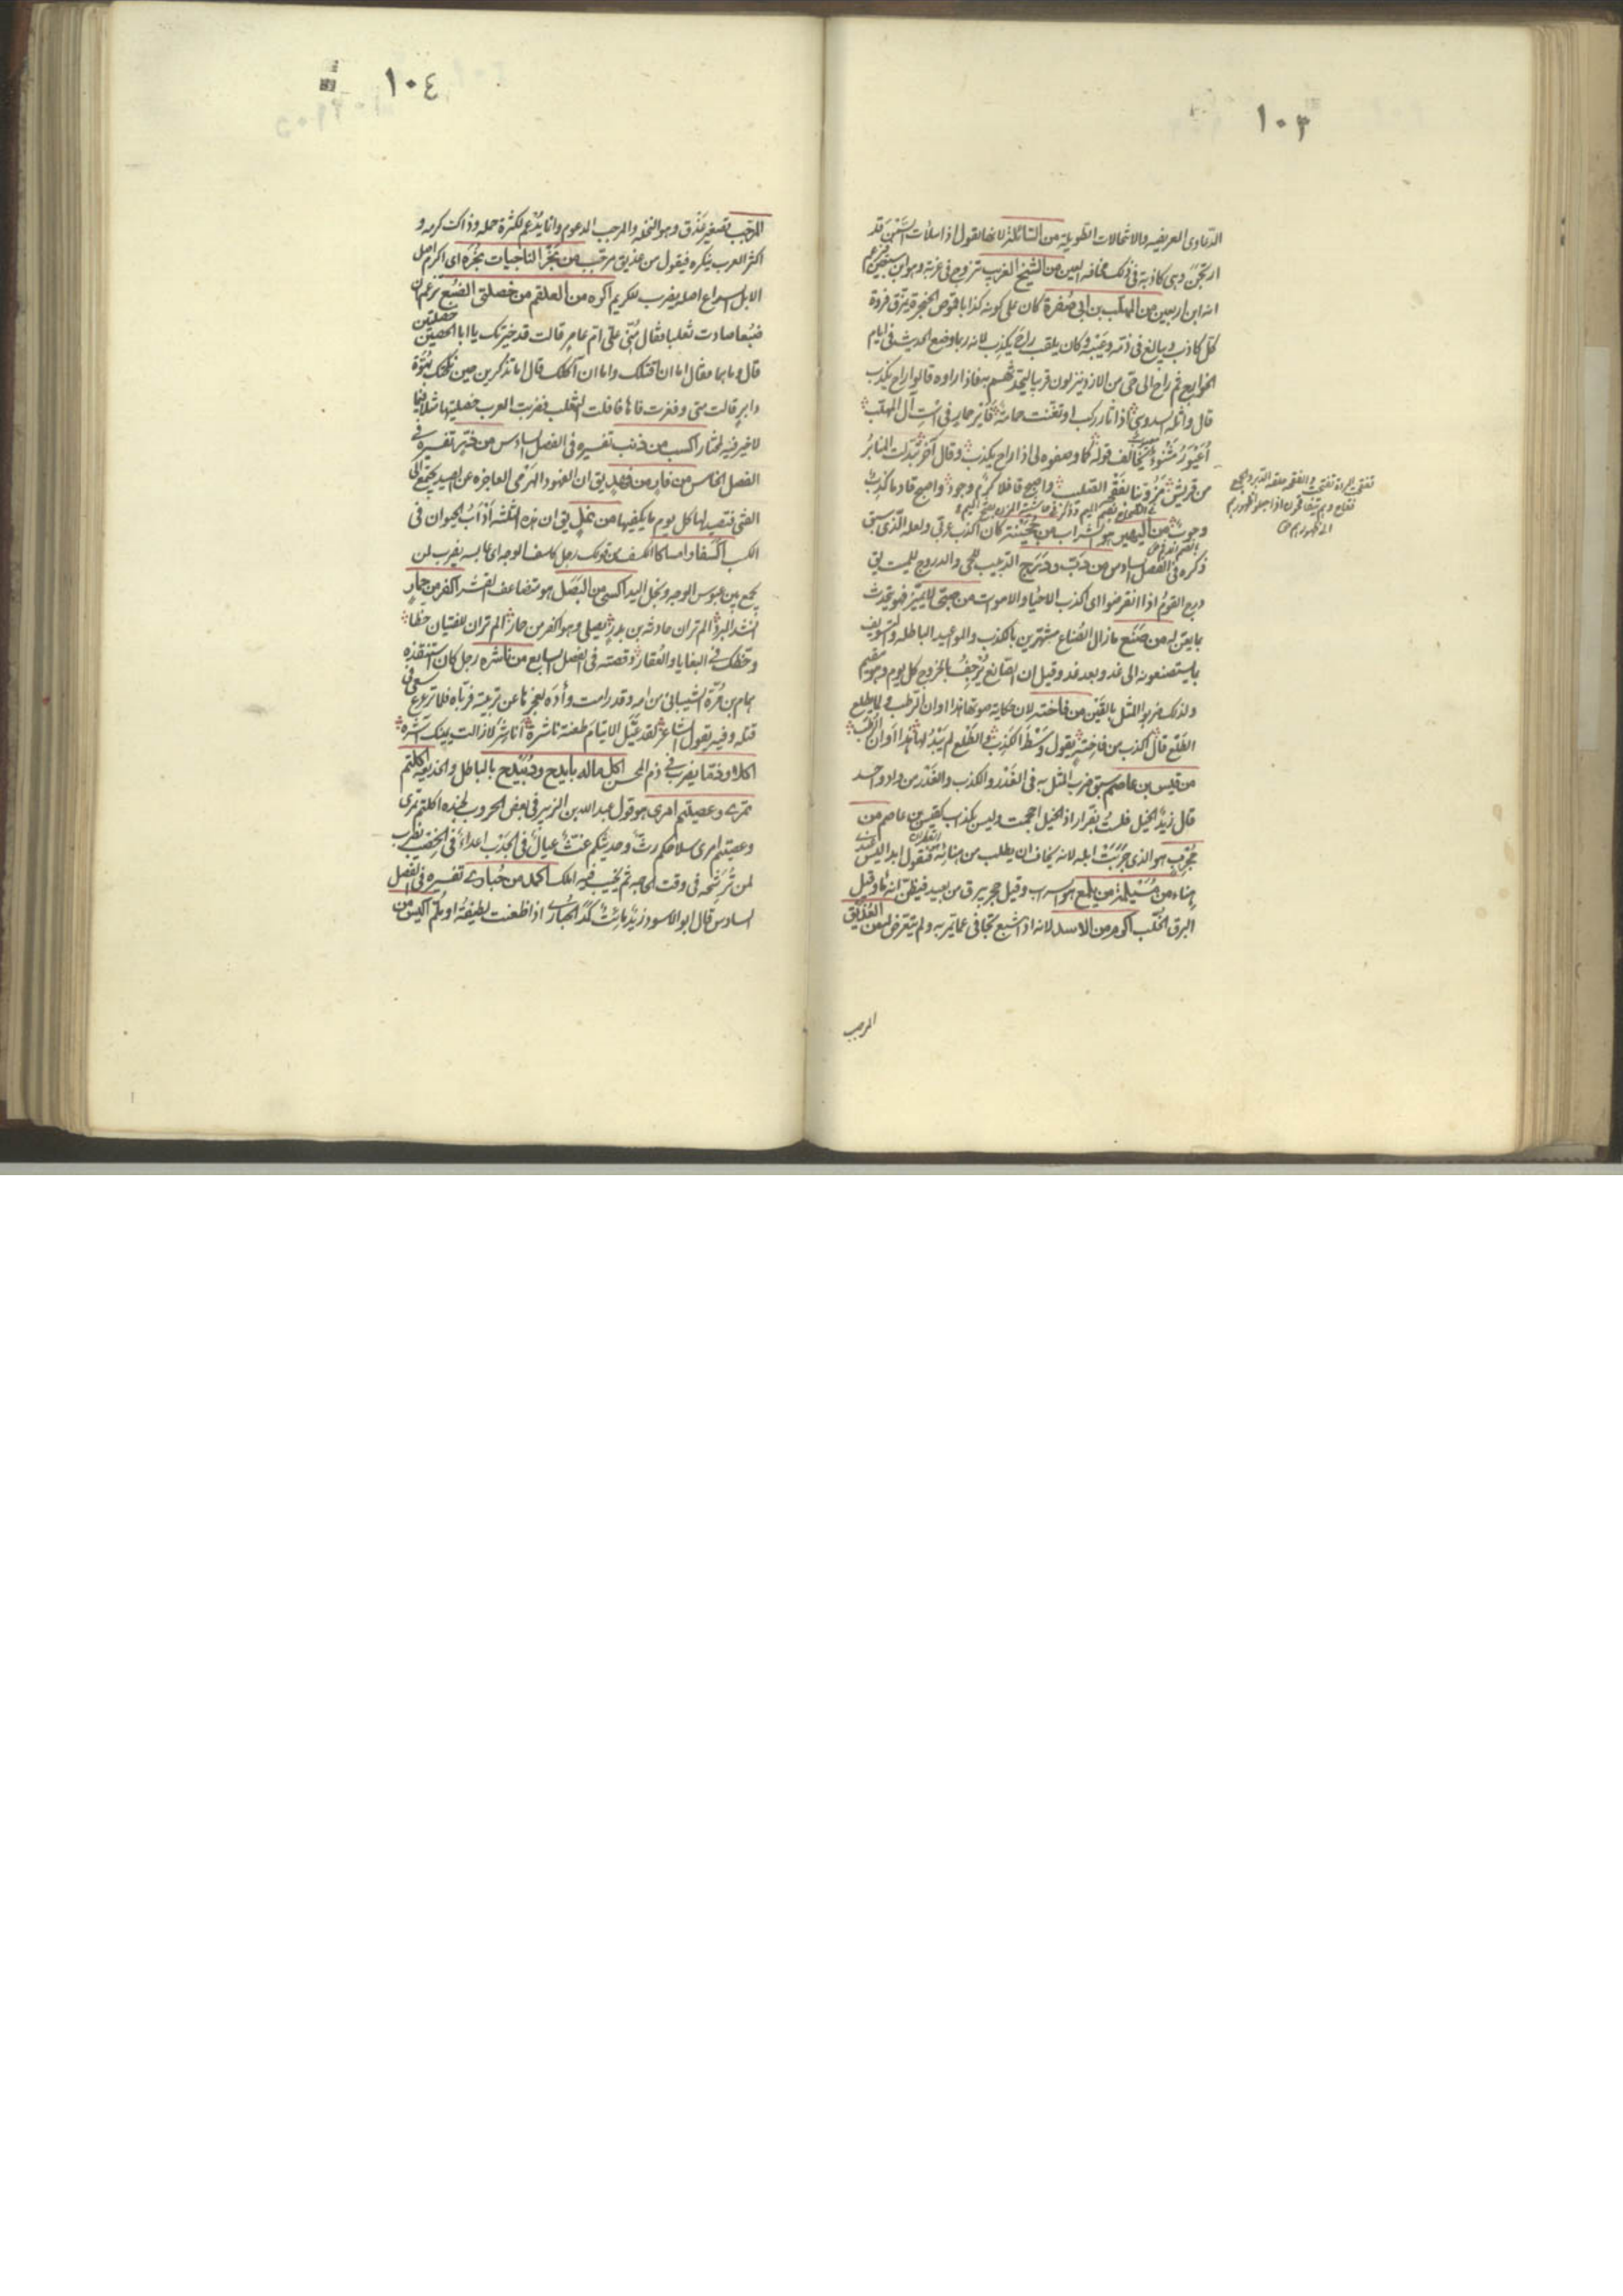 ١٠٣
الدعاوى العريضه والانتحالات الطويلة من السائلة لانها تقول اذا سلأت السمن قد
ارتجن وهى كاذبة فى ذلك مخافة العين من الشيخ الغريب تزوج فى غربة وهو ابن سبعين فزعم
انه ابن اربعين من المهلب بن ابى صفرة كان على كونه كذابا
كل كاذب ويبالغ فى ذمه وعيبه وكان يلقب راح يكذب لانه ربما وضع الحديث فى ايام
الخوارج ثم راح الى حى من الازد ينزلون قريبا ليحدثهم به فاذا راوه قالوا راح يكذب
قال واثلة السدوسى اذا نار ركب او تغنت حمامة فى است آل المهلب
أعيور مشنوء يخالف قوله كما وصفوه لى اذا راح يكذب وقال آخر تبدلت المنابر
من قريش مزونيا بفقحته الصليب واصبح قافلا كرم وجود واصبح قادما كذب
وحوب من اليهير هو السراب من جحينة كان اكذب عرقى ولعله الذى سبق
ذكره فى الفصل السادس من دب ودرج الدبيب للحى والدروج للميت يق
درج القوم اذا انقرضوا اى اكذب الاحياء والاموات من صبى لا يميز فهو يحدث
بما يعن له من صنع ما زال الصناع مشتهرين بالكذب والمواعيد الباطله والتسويف
بما يستصنعونه الى غد وبعد غد وقيل ان الصانع يرجف بالخروج كل يوم وهو مقيم
ولذلك ضربوا المثل بالقين من فاختة لان حكاية صوتها هذا اوان الرطب ولما يطلع
الطلع قال اكذب من فاختة تقول وسط الكرب والطلع لم يبد لها هذا اوان الرطب
من قيس بن عاصم سبق ضرب المثل به فى الغدر والكذب والغدر من واد واحد
قال زيد الخيل فلست بفرار اذا الخيل احجمت وليس بكذاب كقيس بن عاصم من
مجرب هو الذى جربت ابله لانه يخاف ان يطلب من هنائه فيقول ابدا ليس عندى
هناء من مسيلمة من يلمع هو السراب وقيل حجر يبرق من بعيد فيظن انه ماء وقيل
البرق الخلب اكرم من الاسد لانه اذا شبع تجافى عما يمر به ولم يتعرض له من العذيق
المرجب
١٠٤
المرجب تصغير عذق وهو النخلة والمرجب المدعوم وانما يدعم لكثرة حمله وذا كرمه و
اكثر العرب ينكره فيقول من عذيق مرجب من نجر الناجيات نجره اى اكرم اصل
الابل السراع اصله يضرب للكريم اكره من العلقم من خصلتى الضبع يزعم ان
ضبعا صادت ثعلبا فقال منى على ام عامر قالت قد خيرتك يا ابا الحصين خصلتين
قال وما هما فقال اما ان اقتلك واما ان آكلك قال اما تذكرين حين نكحتك بهوة
دابر قالت متى وفغرت فاها فافلت الثعلب فضربت العرب خصلتيها مثلا فيما
لا خير فيه لمختار اكسب من ذئب تفسيره فى الفصل السادس من ذر تفسيره فى
الفصل الخامس من فار من فهد يق ان الفهود الهرمى العاجزه عن الصيد يجتمع الى
الفتى فيتصيد لها كل يوم ما يكفيها من نمل يق ان هذه الثلثه ادأب الحيوان فى
الكسب اكسفا وامساكا الكسف من قولك رجل كاسف الوجه اى عابسه يضرب لمن
يجمع بين عبوس الوجه وبخل اليد اكسى من البصل هو متضاعف القشر اكفر من حمار
انشد المبرد الم تران حارثة بن بدر يصلى وهو اكفر من حمار الم تران للفتيان حظا
وحظك فى البغايا والعقار وقصته فى الفصل السابع من ناشره رجل كان استنقذه
همام بن مرة الشيبانى من امه وقد رامت وأده لعجزها عن تربيته فرباه فلما ترعرع سعى فى
قتله وفيه يقول الشاعر لقد عيل الايتام طعنة ناشرة اناشر لا زالت يمينك آشره
اكلا وذما يضرب فى ذم المحسن اكل ماله بابدح ودبيدح بالباطل والخديعه اكلتم
تمرى وعصيتم امرى هو قول عبد الله بن الزبير فى بعض الحروب لجنده اكلتم تمرى
وعصيتم امرى سلاحكم رث وحديثكم غث عيال فى الجدب اعداء فى الخصب يضرب
لمن ترشحه فى وقت الحاجه ثم يخيب فيه املك اكمد من حبارى تفسيره فى الفصل
السادس قال ابو الاسود وزيد مائت كمد الحبارى اذا ظعنت لطيفة او يلم اكيس من